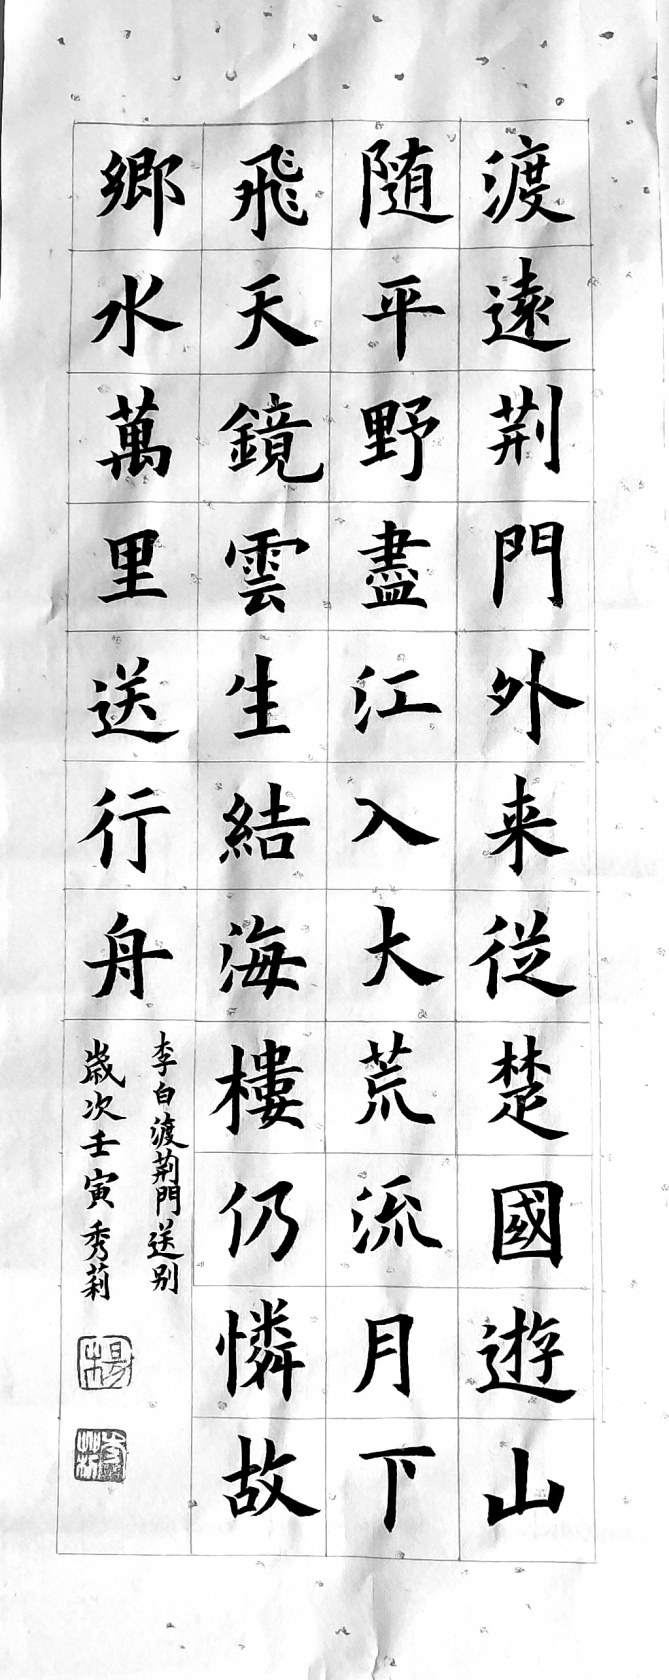 渡遠荆門外来從楚國遊山
随平野盡江入大荒流月下
飛天鏡雲生結海樓仍憐故
鄉水萬里送行舟
李白渡荆門送别
歲次壬寅秀莉